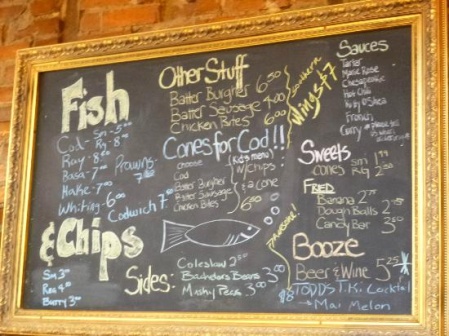 Fish
Cod - Sm - 5.00
Rg - 8.00
Ray - 8.00
Basa - 7.00
Prawns - 7.00
Hake - 7.00
Whiting - 6.00
Codwich 7.00
& Chips
Sm 3.00
Reg 4.00
Butty 3.00
Other Stuff
Batter Burgher 6.50
Batter Sausage 4.00
Chicken Bites 6.00
Southern
Wings $7
Cones for Cod!!
(kids menu)
Choose
Cod
Batter Burgher
Batter Sausage
Chicken Bites
w/ chips
& a Cone
6.00
Awesome!
Sides:
Coleslaw 2.50
Batchelors Beans 3.00
Mushy Peas 3.00
Sauces
Tarter
Marie Rose
Chesapeake
Hot Chili
French
Curry
Sweets
Cones sm 1.99
Rg 2.50
Fried
Banana 2.75
Dough Balls 2.75
Candy Bar 3.50
Booze
Beer & Wine 5.25
$8 TODDS Tiki Cocktail
→ Mai Melon